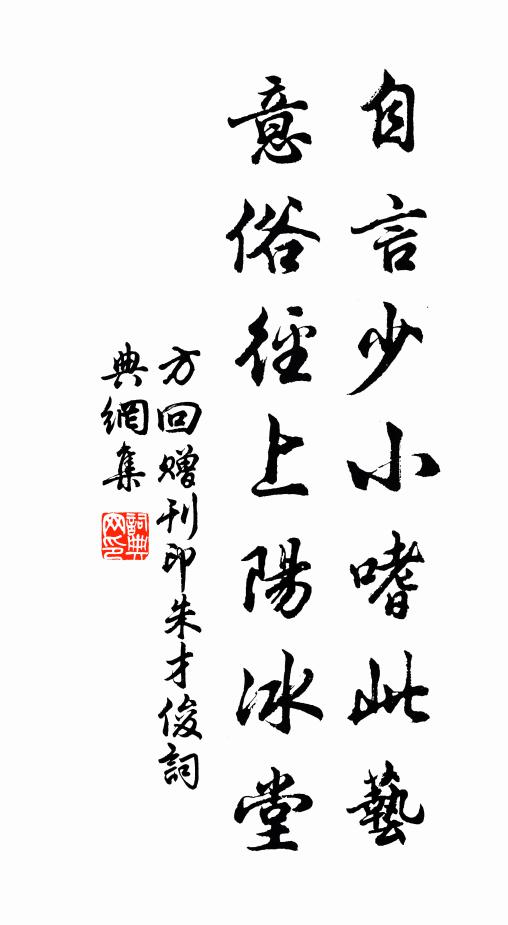 自言少小嗜此藝
意俗徑上陽冰堂
方回贈刊印朱才俊詞
典網集
詞典
网印